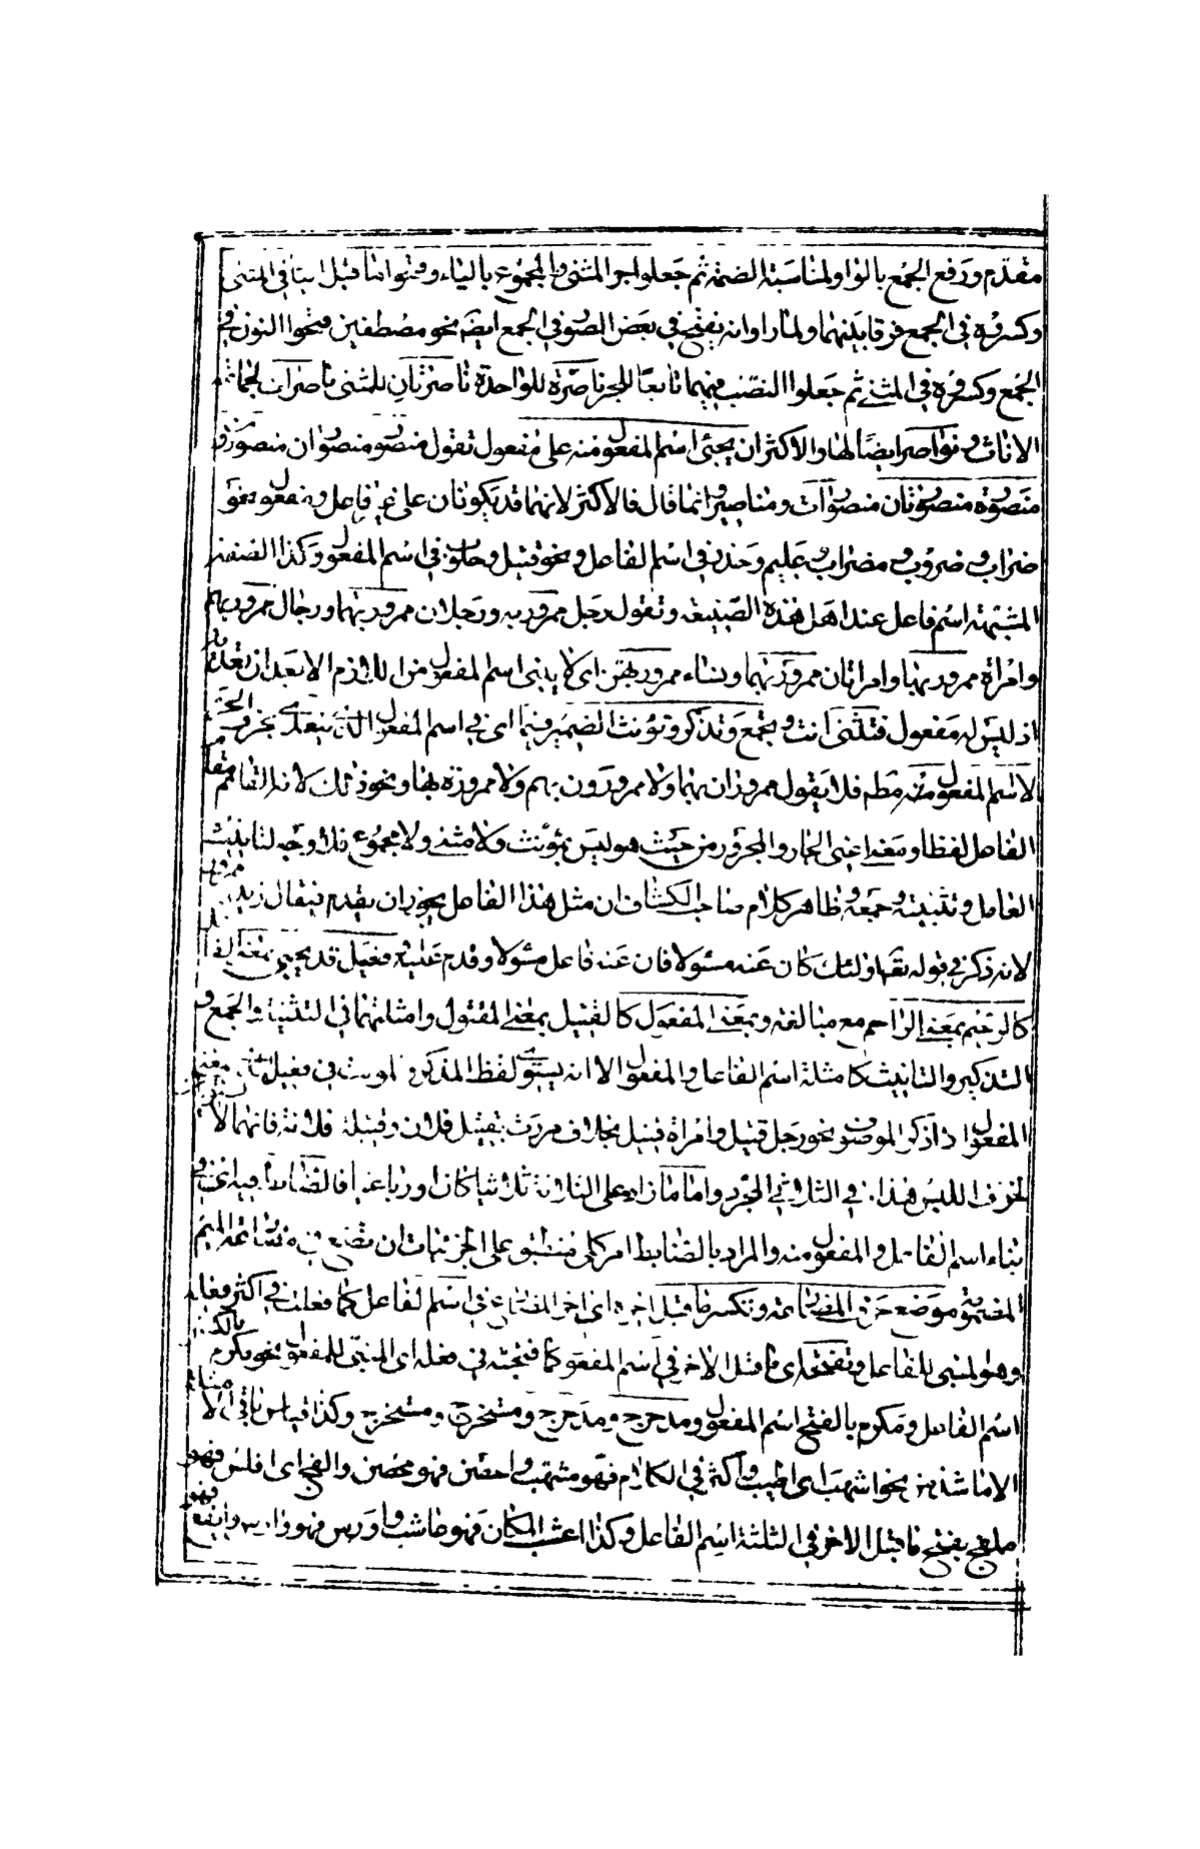 مقدم ورفع الجمع بالواو لمناسبة الضمة ثم جعلوا جر المثنى والمجموع بالياء وفتحوا ما قبل الياء في المثنى
وكسروه في الجمع فرقا بينهما ولما راوا انه يفتح في بعض الصور في الجمع ايضا نحو مصطفين فتحوا النون في
الجمع وكسروه في المثنى ثم جعلوا النصب فيهما تابعا للجر ناصرة للواحدة ناصرتان للمثنى ناصرات لجماعة
الاناث ونواصر ايضا لها والاكثر ان يجئ اسم المفعول منه على مفعول تقول منصور منصوران منصورون
منصورة منصورتان منصورات ومناصير وانما قال فالاكثر لانهما قد يكونان على غير فاعل ومفعول نحو
ضراب وضروب ومضراب وعليم وحذر في اسم الفاعل ونحو قتيل وحلوب في اسم المفعول وكذا الصفة
المشبهة اسم فاعل عند اهل هذه الصنيعة وتقول رجل ممرور به ورجلان ممرور بهما ورجال ممرور بهم
وامراة ممرور بها وامراتان ممرور بهما ونساء ممرور بهن اي لا يبنى اسم المفعول من اللازم الا بعد ان تعديه
اذ ليس له مفعول فتثنى انت وتجمع وتذكر وتؤنث الضمير فيما اي في اسم المفعول الذي يتعدى بحرف الجر
لا اسم المفعول منه مط فلا يقول ممروران بهما ولا ممرورون بهم ولا ممرورة بها ونحو ذلك لانه القائم مقام
الفاعل لفظا ومعنى اعني الجار والمجرور من حيث هو ليس بمؤنث ولا مثنى ولا مجموع فلا وجه لتانيث
العامل وتثنيته وجمعه وظاهر كلام صاحب الكشاف ان مثل هذا الفاعل يجوز ان يقدم فيقال زيد
لانه ذكر في قوله تعالى اولئك كان عنه مسئولا فان عنه فاعل مسئولا وقدم عليه وفعيل قد يجيئ بمعنى الفاعل
كالرحيم بمعنى الراحم مع مبالغة وبمعنى المفعول كالقتيل بمعنى المقتول وامثلتهما في التثنية والجمع و
التذكير والتانيث كامثلة اسم الفاعل والمفعول الا انه يستوى لفظ المذكر والمونث في فعيل بمعنى
المفعول اذا ذكر الموصوف نحو رجل قتيل وامراة قتيل بخلاف مررت بقتيل فلان وقتيلة فلانة فانهما لا
لخوف اللبس هذا في الثلاثي المجرد واما ما زاد على الثلاثة ثلاثيا كان او رباعيا فالضابط فيه اي في
بناء اسم الفاعل والمفعول منه والمراد بالضابط امر كلى منطبق على الجزئيات ان تضع في مضارعه الميم
المضمومة موضع حرف المضارعة وتكسر ما قبل اخره اي اخر المضارع في اسم الفاعل كما فعلت في اكثر فعله
وهو المبنى للفاعل وتفتحه اى ما قبل الاخر في اسم المفعول كما فتحته في فعله اى المبنى للمفعول نحو مكرم بالكسر
اسم الفاعل ومكرم بالفتح اسم المفعول ومدحرج ومدحرج ومستخرج ومستخرج وكذا قياس باقي الامثلة
الا ما شذ من نحو اسهب اى اطنب واكثر في الكلام فهو مسهب واحصن فهو محصن والفج اى افلس فهو
ملفج بفتح ما قبل الاخر في الثلثة اسم الفاعل وكذا اعشب المكان فهو عاشب واورس فهو وارس وايفع فهو